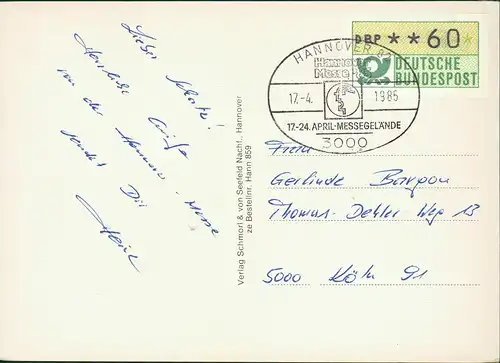 Lieber Schatz!
Herzliche Grüße
von der Hannover-Messe
sendet Dir
Heinz
Verlag Schmorl & von Seefeld Nachf., Hannover
ze Bestellnr. Hann 859
DBP **60
DEUTSCHE
BUNDESPOST
HANNOVER 82
Hannover
Messe
17.-4. 1985
17.-24. APRIL-MESSEGELÄNDE
3000
Frau
Gerlinde
Thomas-Dehler Weg 13
5000 Köln 91